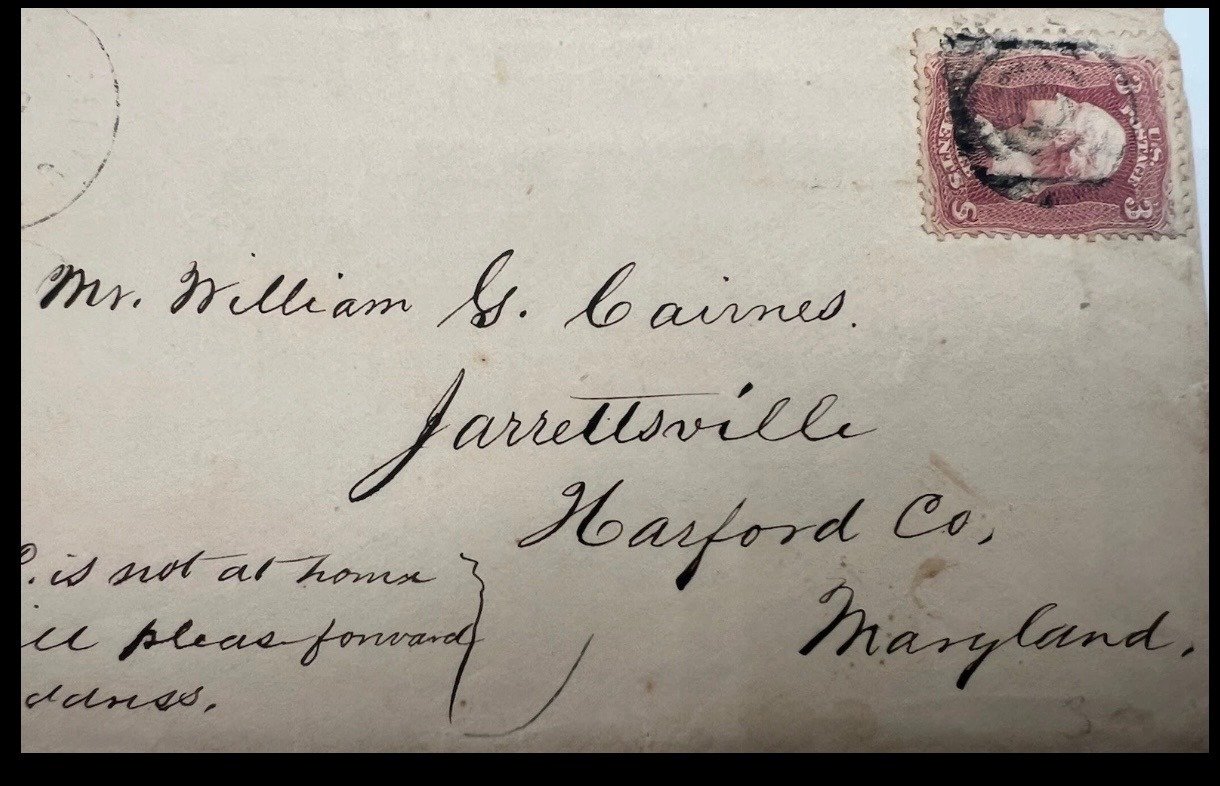 U.S. POSTAGE
3 3
THREE CENTS
Mr. William G. Cairnes.
Jarrettsville
Harford Co,
Maryland.
C. is not at home
ill pleas forward
ddress.